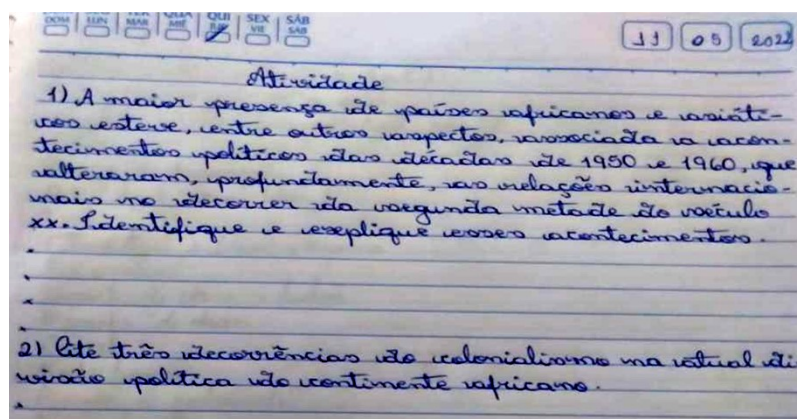 DOM LUN MAR MIÉ QUI SEX VIE SÁB SÁB
11 05 2022
Atividade
1) A maior presença de países africanos e asiáti-
cos esteve, entre outros aspectos, associada a acon-
tecimentos políticos das décadas de 1950 e 1960, que
alteraram, profundamente, as relações internacio-
nais no decorrer da segunda metade do século
xx. Identifique e explique esses acontecimentos.
2) Cite três decorrências do colonialismo na atual di
visão política do continente africano.